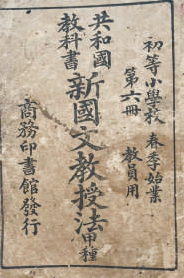 初等小學校 春季始業
第六冊 教員用
共和國教科書
新國文教授法甲種
商務印書館發行